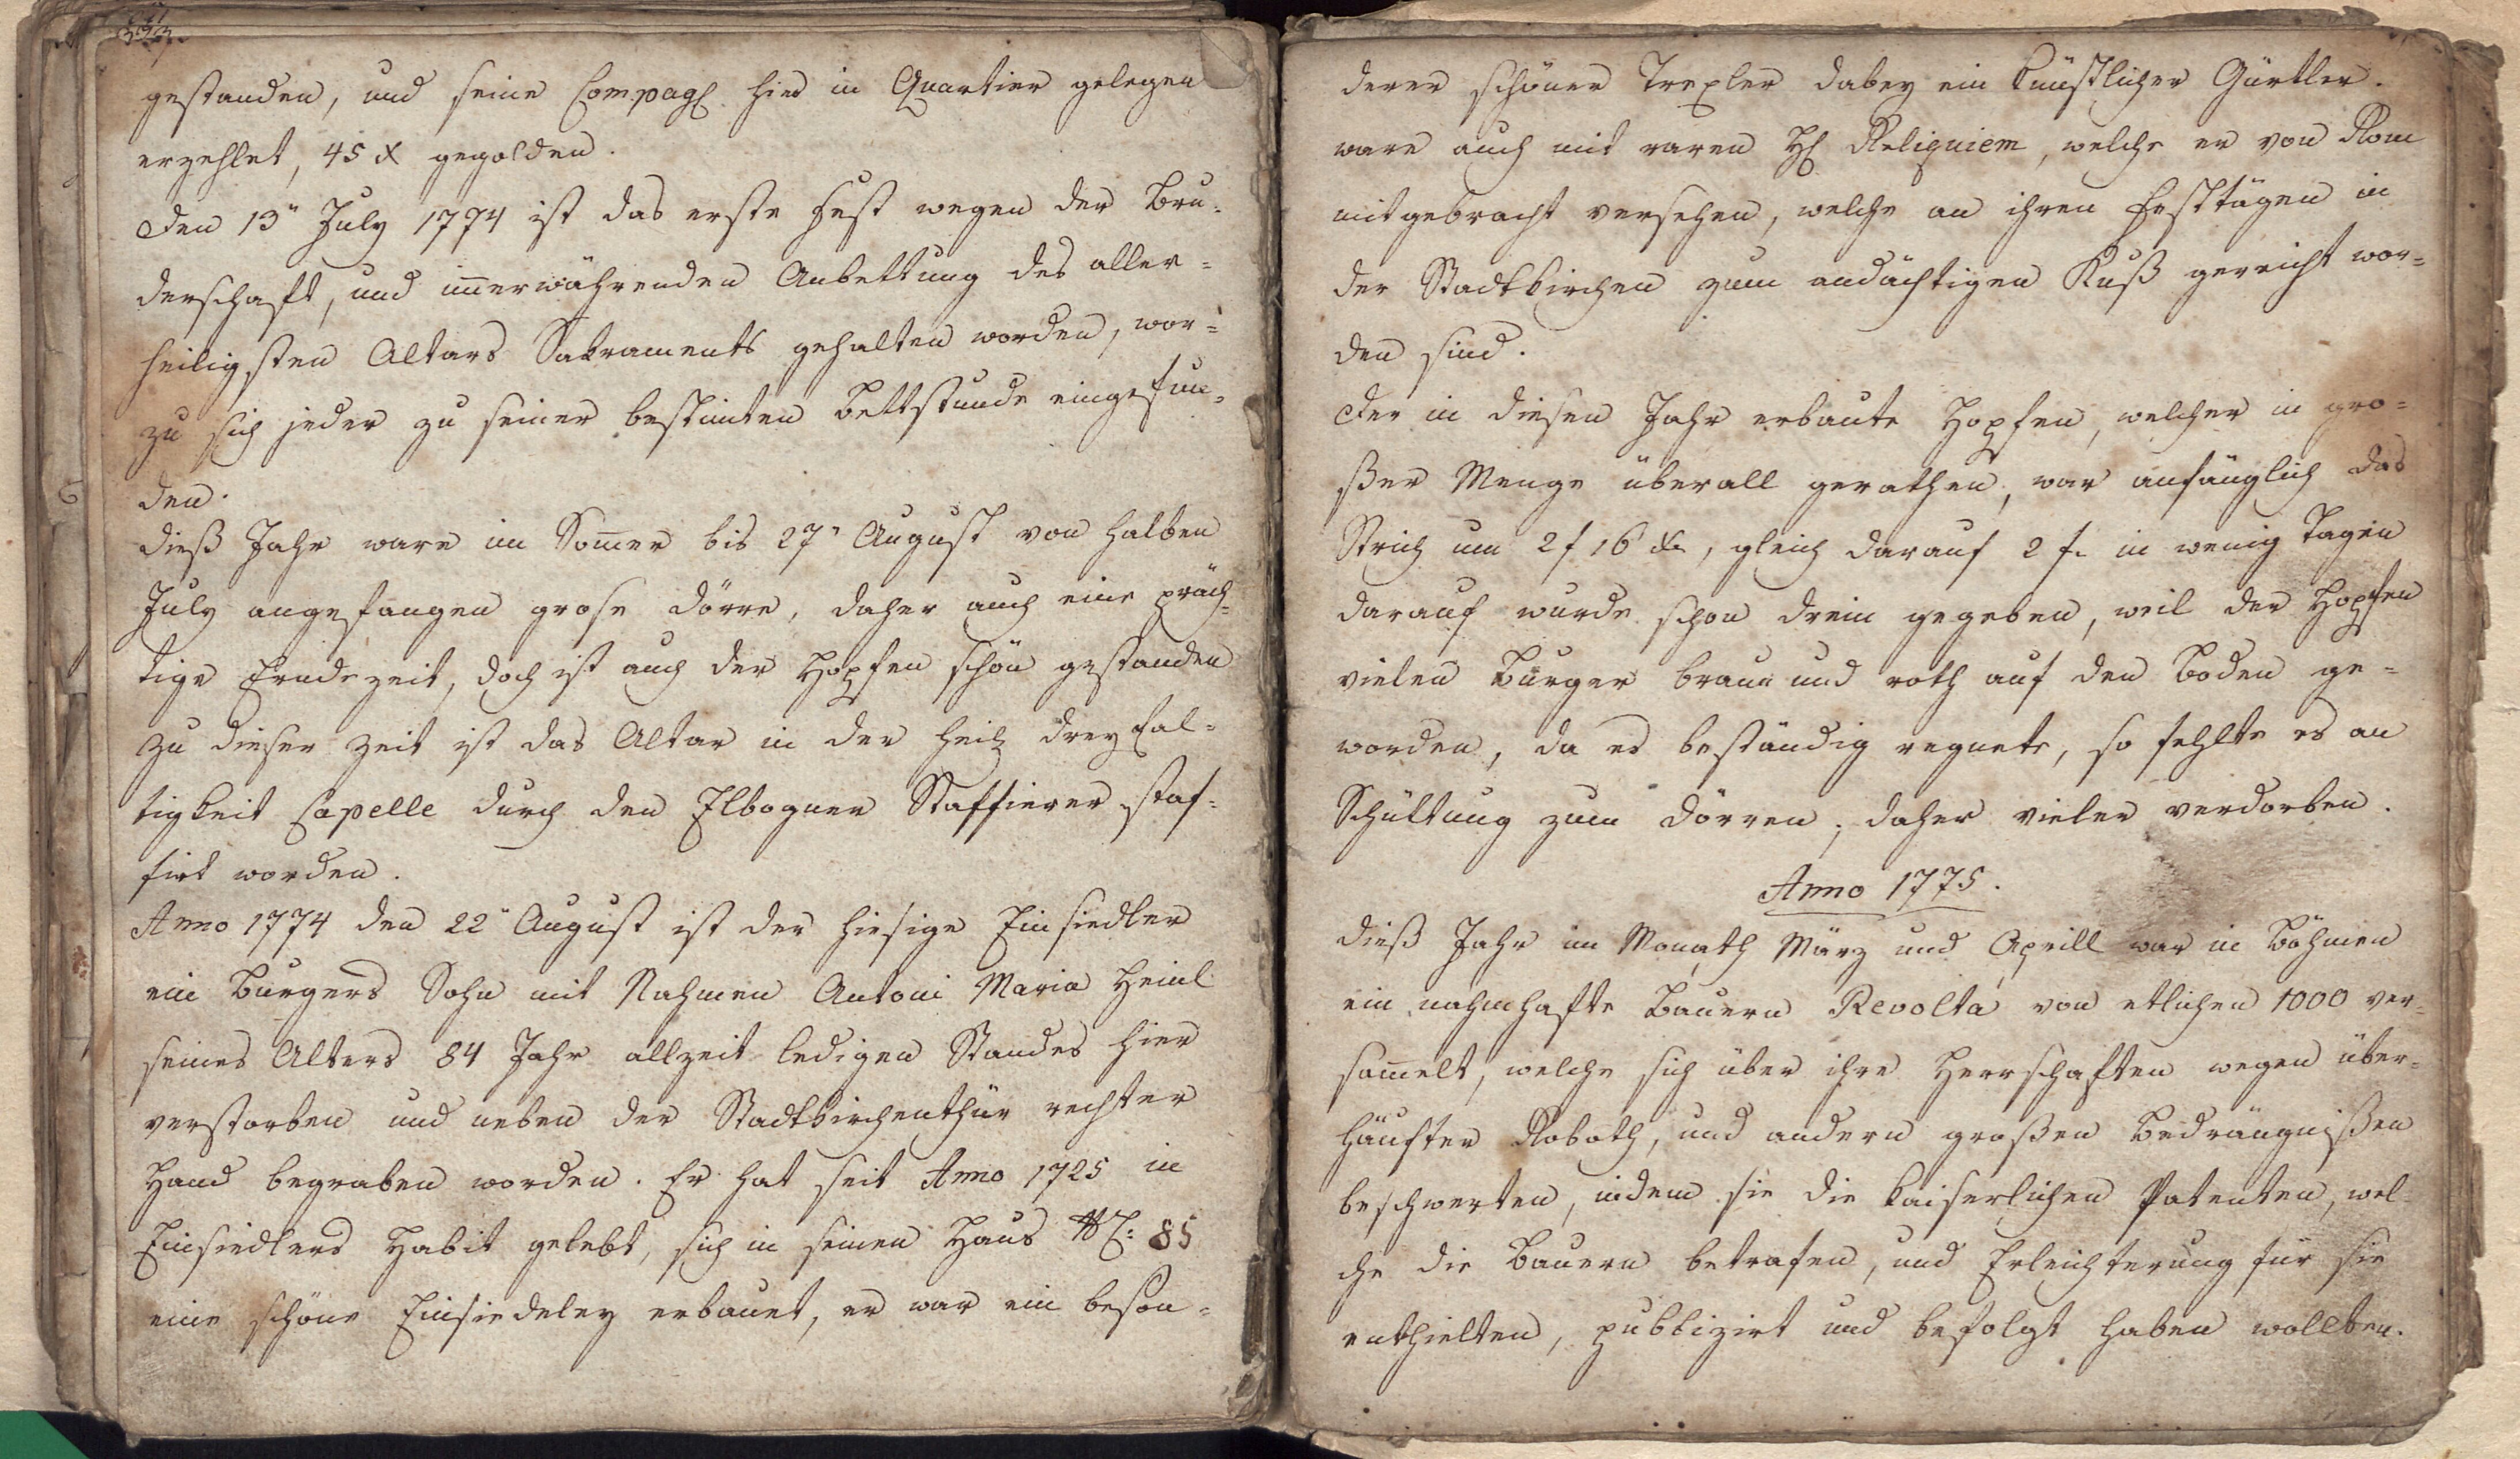 gestanden, und seine Compagl hier in Quartier gelegen
erzehlet, 45 x gegolden.
Den 13" July 1774 ist das erste Fest wegen der Bru-
derschaft, und im̅erwährenden Anbettung des aller-
heiligsten Altars Sakraments gehalten worden, wor-
zu sich jeder zu seiner bestimten Bettstunde eingefun-
den.
Dieß Jahr ware im Som̅er bis 27" August von halben
July angefangen grose Dörre, daher auch eine präch-
tige Erndezeit, doch ist auch der Hopfen schön gestanden
Zu dieser Zeit ist das Altar in der heil dreyfal-
tigkeit Capelle durch den Elbogner Staffierer staf-
firt worden.
Anno 1774 den 22" August ist der hiesige Einsiedler
ein Burgers Sohn mit Nahmen Antoni Maria Heinl
seines Alters 84 Jahr allzeit ledigen Standes hier
verstorben und neben der Stadtkirchenthür rechter
Hand begraben worden. Er hat seit Anno 1725 in
Einsiedlers Habit gelebt, sich in seinen Haus NC: 85
eine schöne Einsiedeley erbauet, er war ein beson-
derer schöner Trexler dabey ein künstlicher Gürtler.
ware auch mit raren Hl Reliquiem, welche er von Rom
mitgebracht versehen, welche an ihren Festtägen in
der Stadtkirchen zum andächtigen Kuß gereicht wor-
den sind.
Der in diesen Jahr erbaute Hopfen, welcher in gro-
ßer Menge überall gerathen, war anfänglich das
Strich um 2 f 16 x, gleich darauf 2 f. in wenig Tagen
darauf wurde schon drein gegeben, weil der Hopfen
vielen Bürger braun und roth auf den Boden ge-
worden, da es beständig regnete, so fehlte es an
Schüttung zum dörren, daher vieler verdorben.
Anno 1775.
Dieß Jahr im Monath März und Aprill war in Böhmen
ein nahmhafte Bauern Revolta von etlichen 1000 ver-
sam̅elt, welche sich über ihre Herrschaften wegen über-
häufter Roboth, und andern großen Bedrängnißen
beschwerten, indem sie die kaiserlichen Patenten, wel-
che die Bauern betrafen, und Erleichterung für sie
enthielten, publizirt und befolgt haben wollten.